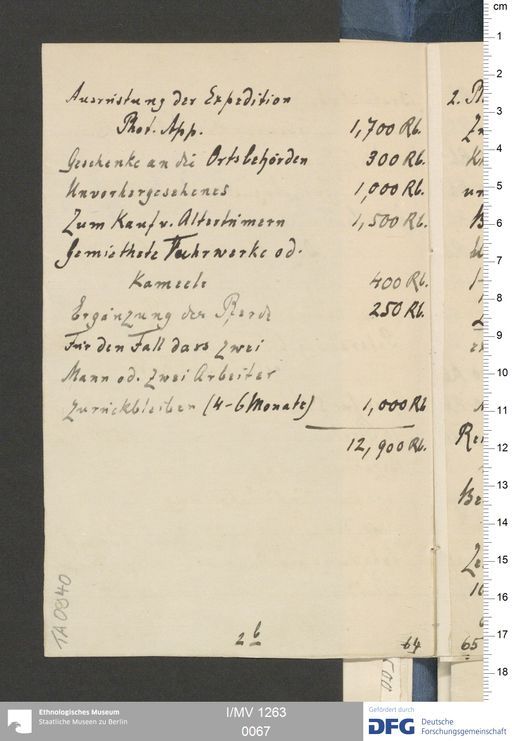 Ausrüstung der Expedition
Phot. App. 1,700 Rb.
Geschenke an die Ortsbehörden 300 Rb.
Unvorhergesehenes 1,000 Rb.
Zum Kauf v. Altertümern 1,500 Rb.
Gemiethete Fuhrwerke od.
Kameele 400 Rb.
Ergänzung der Pferde 250 Rb.
Für den Fall dass zwei
Mann od. zwei Arbeiter
zurückbleiben (4-6 Monate) 1,000 Rb
12,900 Rb.
TA0940
2 b
64
2.
65
500
cm
1
2
3
4
5
6
7
8
9
10
11
12
13
14
15
16
17
18
Ethnologisches Museum
Staatliche Museen zu Berlin
I/MV 1263
0067
Gefördert durch
DFG Deutsche
Forschungsgemeinschaft